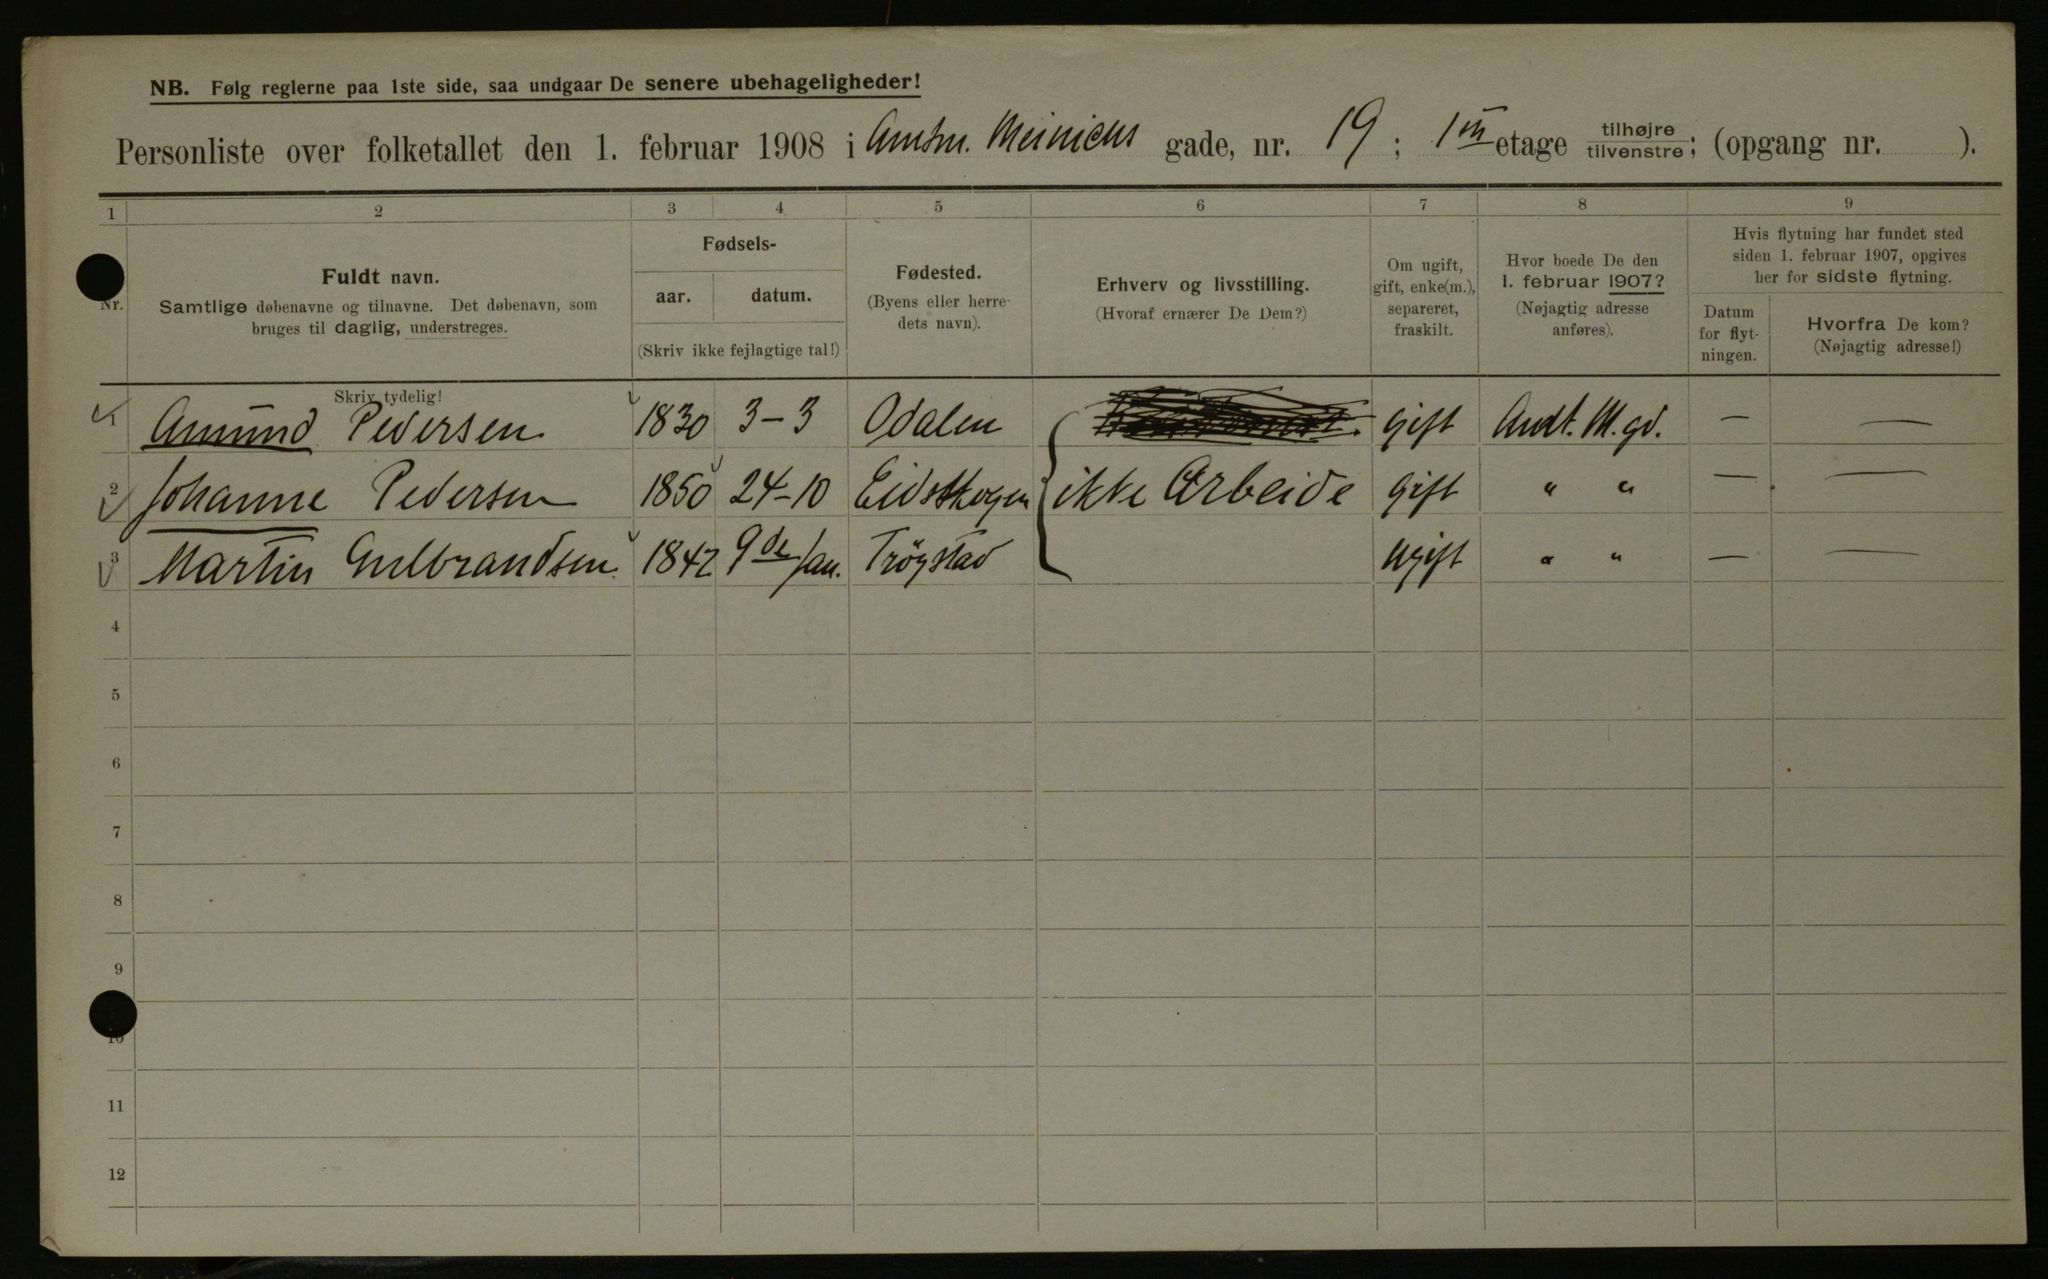 NB. Følg reglerne paa 1ste side, saa undgaar De senere ubehageligheder!
Personliste over folketallet den 1. februar 1908 i Amtm. Meinichs gade, nr. 19; 1ste etage tilhøjre tilvenstre; (opgang nr. ).
1 2 3 4 5 6 7 8 9
Nr.
Fuldt navn.
Samtlige døbenavne og tilnavne. Det døbenavn, som
bruges til daglig, understreges.
Skriv tydelig!
Fødsels-
aar. datum.
(Skriv ikke fejlagtige tal!)
Fødested.
(Byens eller herre-
dets navn).
Erhverv og livsstilling.
(Hvoraf ernærer De Dem?)
Om ugift,
gift, enke(m.),
separeret,
fraskilt.
Hvor boede De den
1. februar 1907?
(Nøjagtig adresse
anføres).
Hvis flytning har fundet sted
siden 1. februar 1907, opgives
her for sidste flytning.
Datum
for flyt-
ningen.
Hvorfra De kom?
(Nøjagtig adresse!)
1 Amund Pedersen 1830 3-3 Odalen gift M. gd. — —
2 Johanne Pedersen 1850 24-10 Eidskogen ikke Arbeide gift " " — —
3 Martin Gulbrandsen 1842 9de Jan. Trøgstad ugift " " — —
4
5
6
7
8
9
10
11
12